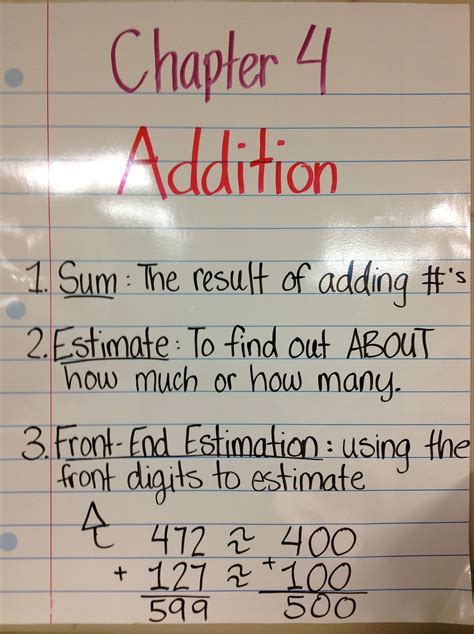 Chapter 4
Addition
1. Sum: The result of adding #'s
2. Estimate: To find out ABOUT
how much or how many.
3. Front-End Estimation: using the
front digits to estimate
472 ≈ 400
+ 127 ≈ +100
599 500